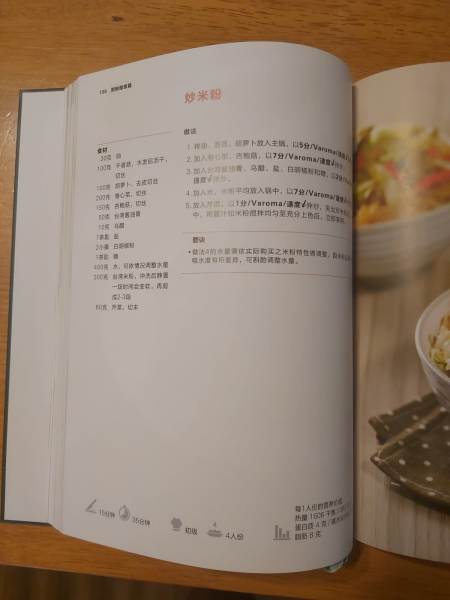 炒米粉
食材
30克 油
100克 干香菇，水发后沥干，
切丝
100克 胡萝卜，去皮切丝
200克 卷心菜，切丝
150克 杏鲍菇，切丝
50克 台湾酱油膏
10克 乌醋
1茶匙 盐
2小撮 白胡椒粉
1茶匙 糖
400克 水，可依情况调整水量
200克 台湾米粉，冲洗后静置
一段时间会变软，再剪
成2-3段
60克 芹菜，切末
做法
1. 将油、香菇、胡萝卜放入主锅，以5分/Varoma/速度
2. 加入卷心菜、杏鲍菇，以7分/Varoma/速度 拌炒。
3. 加入台湾酱油膏、乌醋、盐、白胡椒粉和糖，以
速度 拌炒。
4. 加入水，米粉平均放入锅中，以7分/Varoma/速度
5. 放入芹菜，以1分/Varoma/速度
中，用酱汁和米粉搅拌均匀至充分上色后，立即享用。
要诀
• 做法4的水量需依实际购买之米粉特性做调整，
吸水度有所差异，可斟酌调整水量。
15分钟
35分钟
初级
4人份
每1人份的营养价值
热量 1606 千焦
蛋白质 4 克
脂肪 8 克